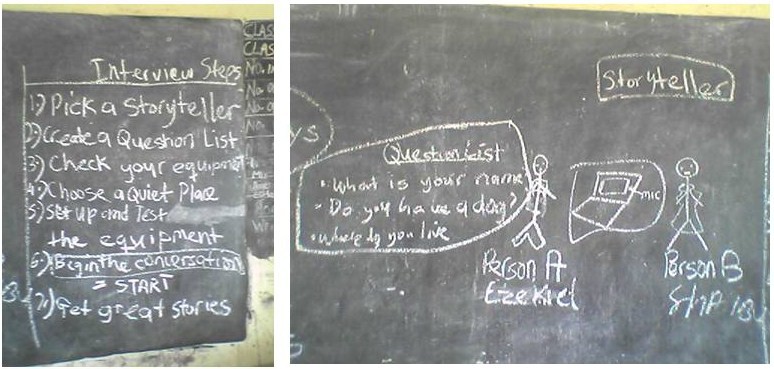 Interview Steps
1.) Pick a Storyteller
2.) Create a Question List
3.) Check your equipment
4.) Choose a Quiet Place
5.) Set Up and Test
the equipment
6.) Begin the conversation
= START
7.) Get great stories
CLAS
CLAS
No.
No.
No.
Storyteller
ys
Question List
• What is your name
• Do you have a dog?
• Where do you live
mic
Person A
Ezekiel
Person B